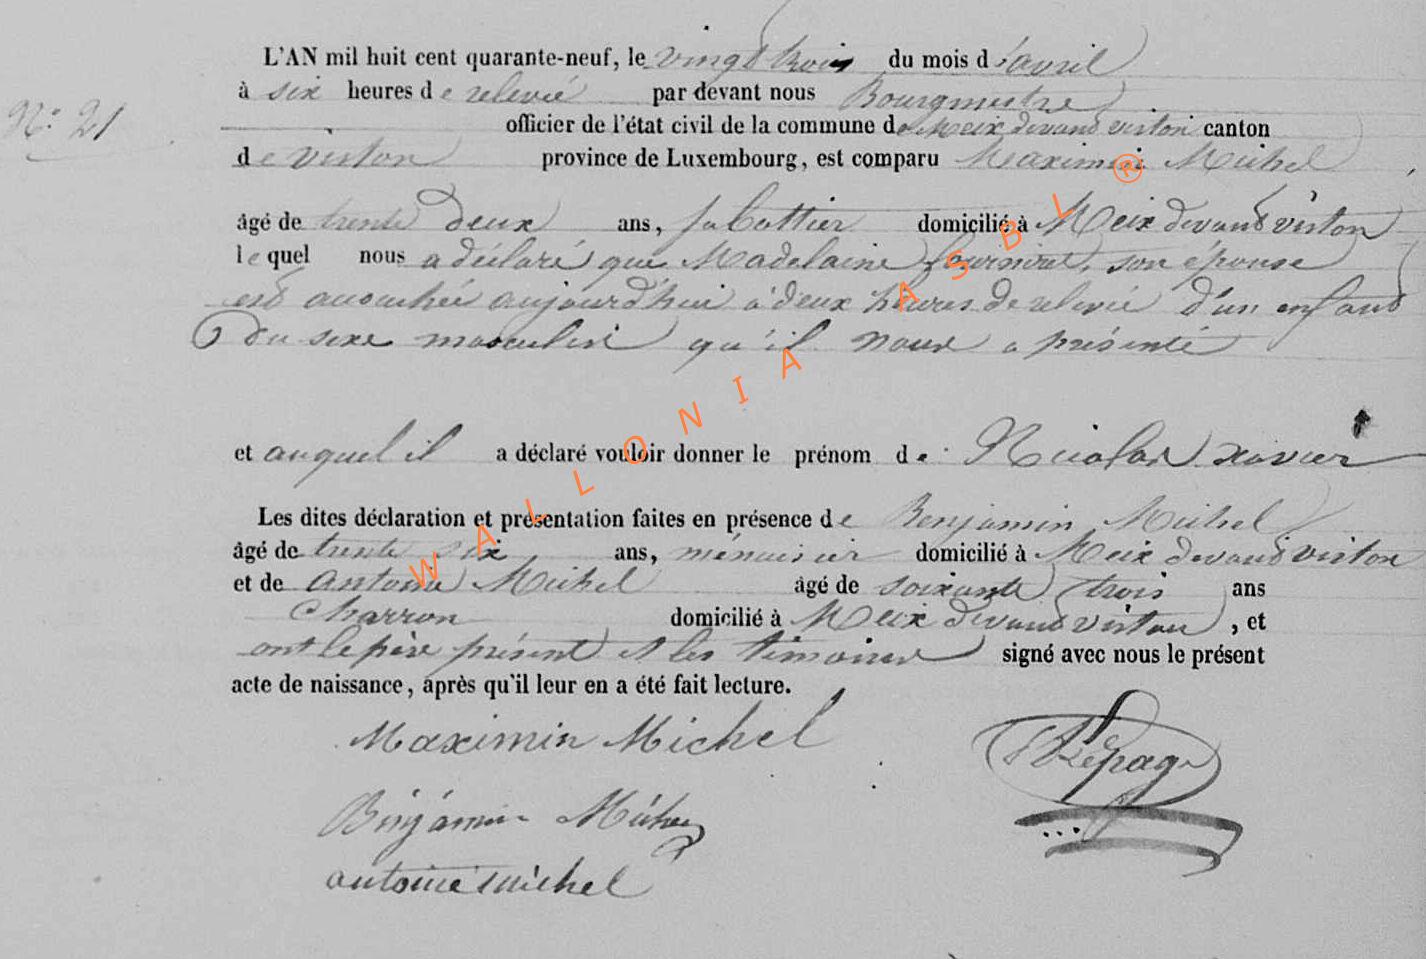 N° 21
L'AN mil huit cent quarante-neuf, le vingt trois du mois d'avril
à six heures de relevée par devant nous Bourgmestre
officier de l'état civil de la commune de Meix devand virton canton
de virton province de Luxembourg, est comparu Maximin Michel
âgé de trente deux ans, sabottier domicilié à Meix devand virton
lequel nous a déclaré que Madelaine son épouse
est accouchée aujourd'hui à deux heures de relevée d'un enfand
du sexe masculin qu'il nous a présenté
et auquel il a déclaré vouloir donner le prénom de Nicolas xavier
Les dites déclaration et présentation faites en présence de Benjamin Michel
âgé de trente six ans, ménuisier domicilié à Meix devand virton
et de antoine Michel âgé de soixante trois ans
Charron domicilié à Meix devand virton, et
ont le père présent et les témoins signé avec nous le présent
acte de naissance, après qu'il leur en a été fait lecture.
Maximin Michel
Lepage
Binjamin Michel
antoine Michel
WALLONIA ASBL ®